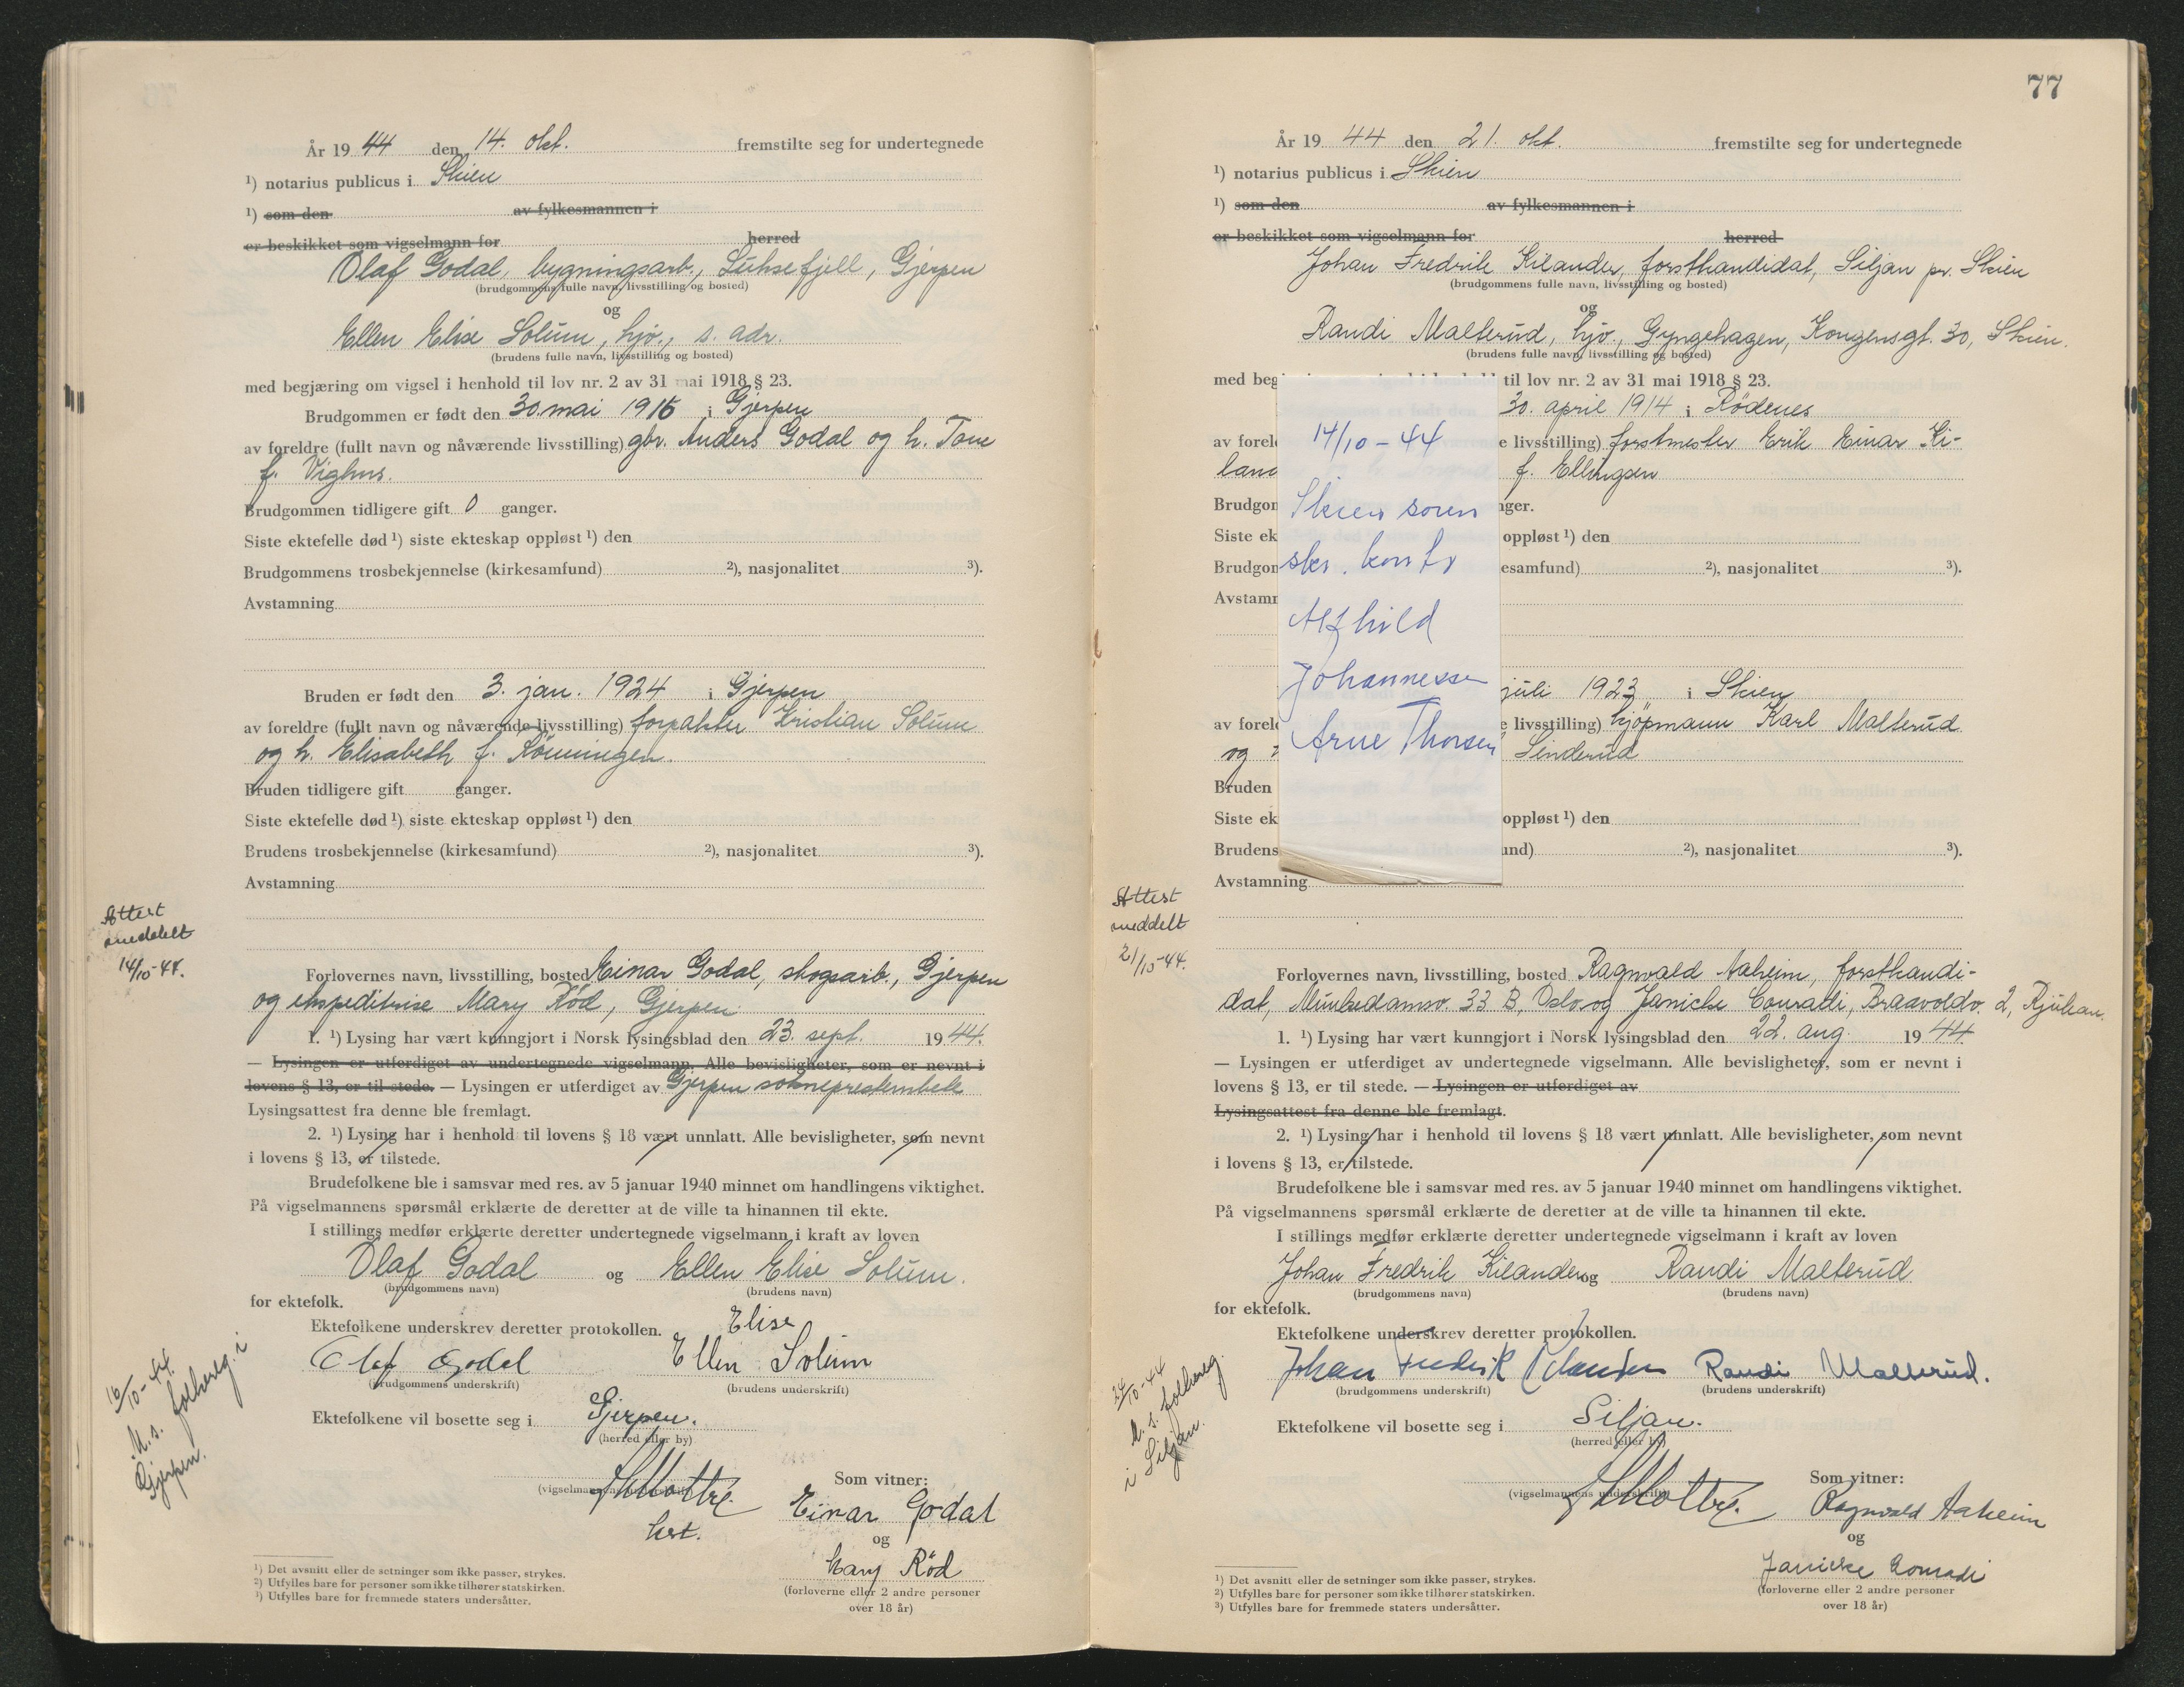 År 19 44 den 14. okt. fremstilte seg for undertegnede
¹) notarius publicus i Skien
¹) som den av fylkesmannen i
er beskikket som vigselmann for herred
Olaf Godal, bygningsarb., Luksefjell, Gjerpen
(brudgommens fulle navn, livsstilling og bosted)
og
Ellen Elise Solum, hjv., s. adr.
(brudens fulle navn, livsstilling og bosted)
med begjæring om vigsel i henhold til lov nr. 2 av 31 mai 1918 § 23.
Brudgommen er født den 30. mai 1916 i Gjerpen
av foreldre (fullt navn og nåværende livsstilling) gbr. Anders Godal og h. Tone
f. Vighus.
Brudgommen tidligere gift 0 ganger.
Siste ektefelle død ¹) siste ekteskap oppløst ¹) den
Brudgommens trosbekjennelse (kirkesamfund) ²), nasjonalitet ³).
Avstamning
Bruden er født den 3. jan. 1924 i Gjerpen
av foreldre (fullt navn og nåværende livsstilling) forpakter Kristian Solum
og h. Elisabeth f. Rönningen.
Bruden tidligere gift ganger.
Siste ektefelle død ¹) siste ekteskap oppløst ¹) den
Brudens trosbekjennelse (kirkesamfund) ²), nasjonalitet ³).
Avstamning
Attest
meddelt
14/10-44.
Forlovernes navn, livsstilling, bosted Einar Godal, skogsarb., Gjerpen
og ekspeditrise Mary Röd, Gjerpen.
1. ¹) Lysing har vært kunngjort i Norsk lysingsblad den 23. sept. 1944.
— Lysingen er utferdiget av undertegnede vigselmann. Alle bevisligheter, som er nevnt i
lovens § 13, er til stede. — Lysingen er utferdiget av Gjerpen sokneprestembete
Lysingsattest fra denne ble fremlagt.
2. ¹) Lysing har i henhold til lovens § 18 vært unnlatt. Alle bevisligheter, som nevnt
i lovens § 13, er tilstede.
Brudefolkene ble i samsvar med res. av 5 januar 1940 minnet om handlingens viktighet.
På vigselmannens spørsmål erklærte de deretter at de ville ta hinannen til ekte.
I stillings medfør erklærte deretter undertegnede vigselmann i kraft av loven
Olaf Godal og Ellen Elise Solum.
(brudgommens navn) (brudens navn)
for ektefolk.
Ektefolkene underskrev deretter protokollen.
Elise
Olaf Godal Ellen Solum
(brudgommens underskrift) (brudens underskrift)
16/10-44
M. s. folkereg. i
Gjerpen.
Ektefolkene vil bosette seg i Gjerpen.
(herred eller by)
Som vitner:
(vigselmannens underskrift)
Einar Godal
og
Mary Röd
(forloverne eller 2 andre personer
over 18 år)
¹) Det avsnitt eller de setninger som ikke passer, strykes.
²) Utfylles bare for personer som ikke tilhører statskirken.
³) Utfylles bare for fremmede staters undersåtter.
77
År 19 44 den 21. okt. fremstilte seg for undertegnede
¹) notarius publicus i Skien
¹) som den av fylkesmannen i
er beskikket som vigselmann for herred
Johan Fredrik Kilander, forstkandidat, Siljan pr. Skien
(brudgommens fulle navn, livsstilling og bosted)
og
Randi Malterud, hjv., Gyngehagen, Kongensgt. 30, Skien.
(brudens fulle navn, livsstilling og bosted)
med beg til lov nr. 2 av 31 mai 1918 § 23.
30. april 1914 i Rödenes
av forel e livsstilling) forstmester Erik Einar Ki-
land f. Ellingsen
Brudgon nger.
Siste ek oppløst ¹) den
Brudgon esamfund) ²), nasjonalitet ³).
Avstamn
14/10-44
Skien soren
skr. kontr
Alfhild
Johannessen
Arne Thorsen
juli 1923 i Skien
av forel e livsstilling) kjöpmann Karl Malterud
og Linderud
Bruden
Siste ek oppløst ¹) den
Brudens und) ²), nasjonalitet ³).
Avstamning
Attest
meddelt
21/10-44.
Forlovernes navn, livsstilling, bosted Ragnvald Aaheim, forstkandi-
dat, Munkedamsv. 33 B, Oslo og Janicke Conradi, Braavoldv. 2, Rjukan.
1. ¹) Lysing har vært kunngjort i Norsk lysingsblad den 22. aug. 1944
— Lysingen er utferdiget av undertegnede vigselmann. Alle bevisligheter, som er nevnt i
lovens § 13, er til stede. — Lysingen er utferdiget av
Lysingsattest fra denne ble fremlagt.
2. ¹) Lysing har i henhold til lovens § 18 vært unnlatt. Alle bevisligheter, som nevnt
i lovens § 13, er tilstede.
Brudefolkene ble i samsvar med res. av 5 januar 1940 minnet om handlingens viktighet.
På vigselmannens spørsmål erklærte de deretter at de ville ta hinannen til ekte.
I stillings medfør erklærte deretter undertegnede vigselmann i kraft av loven
Johan Fredrik Kilander og Randi Malterud
(brudgommens navn) (brudens navn)
for ektefolk.
Ektefolkene underskrev deretter protokollen.
Johan Fredrik Kilander Randi Malterud.
(brudgommens underskrift) (brudens underskrift)
24/10-44
M. s. folkereg.
i Siljan.
Ektefolkene vil bosette seg i Siljan.
(herred eller by)
Som vitner:
(vigselmannens underskrift)
Ragnvald Aaheim
og
Janicke Conradi
(forloverne eller 2 andre personer
over 18 år)
¹) Det avsnitt eller de setninger som ikke passer, strykes.
²) Utfylles bare for personer som ikke tilhører statskirken.
³) Utfylles bare for fremmede staters undersåtter.